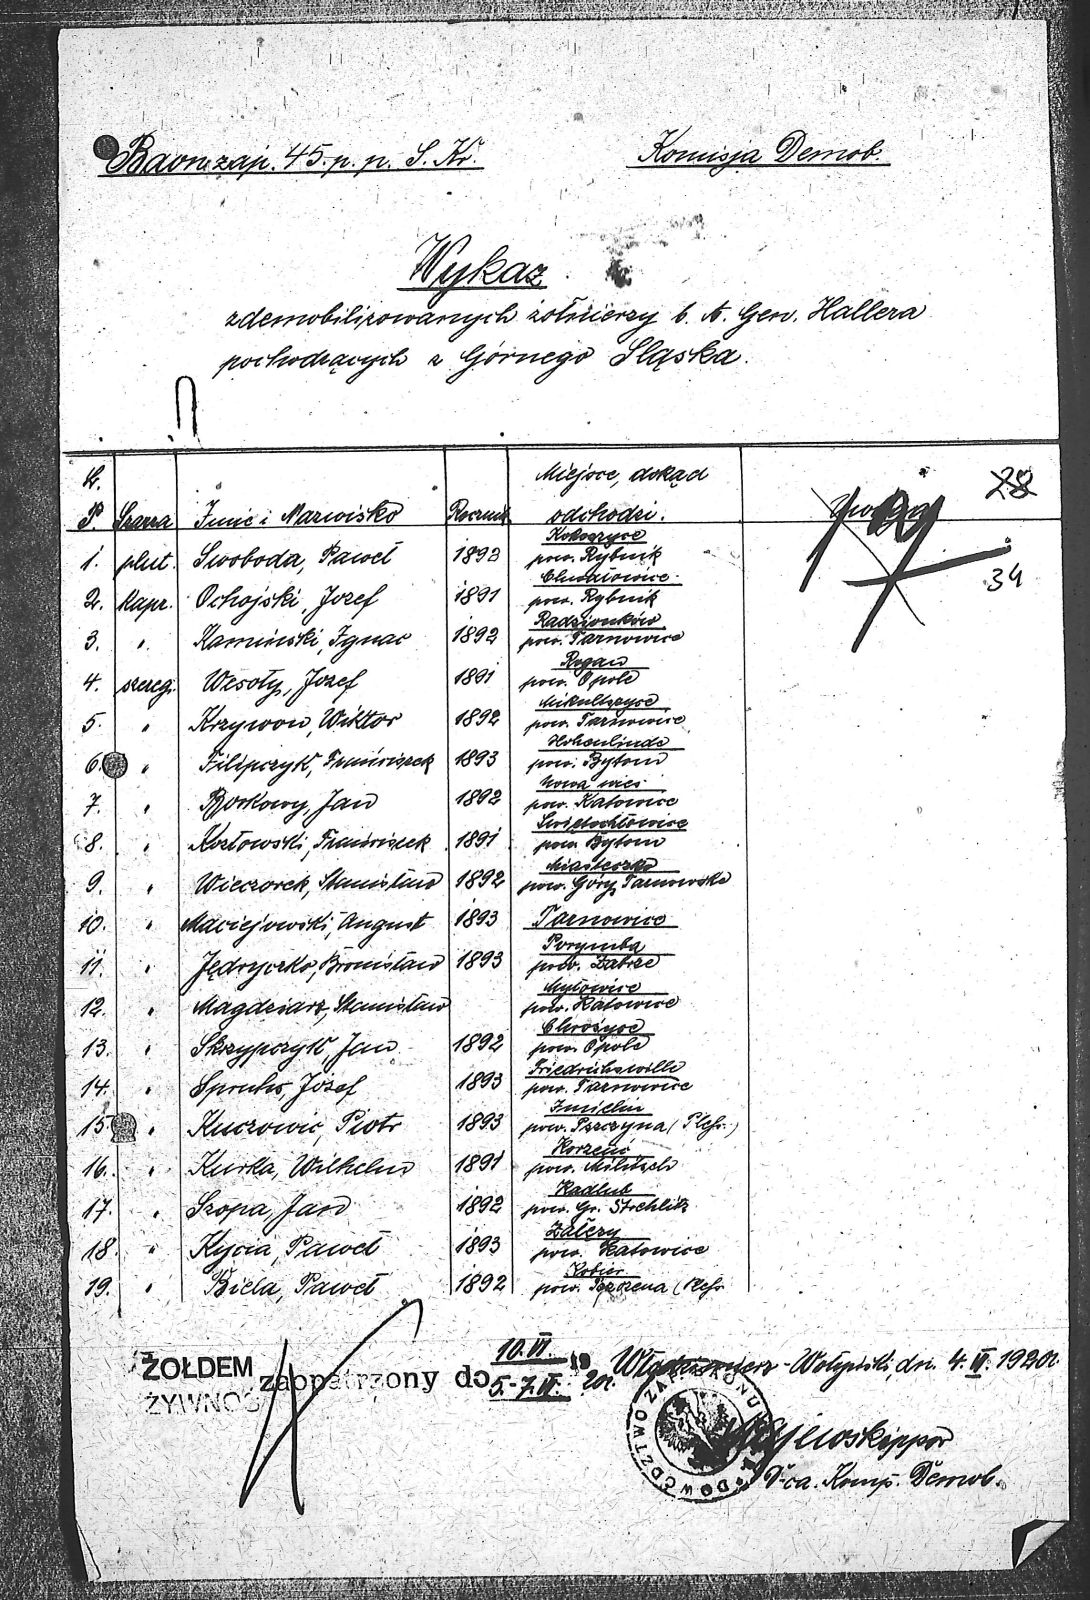 Baon zap. 45. p. p. S. Kr.
Komisja Demob.
Wykaz
zdemobilizowanych żołnierzy b. A. Gen. Hallera
pochodzących z Górnego Śląska.
L. P. Szarża Imię i Nazwisko Rocznik Miejsce, dokąd odchodzi.
28
34
1. plut. Swoboda, Paweł 1892 Kokoszyce pow. Rybnik
2. kapr. Ochojski, Jozef 1891 Chwałowice pow. Rybnik
3. " Kamiński, Ignac 1892 Radzionków pow. Tarnowice
4. szereg. Wesoły, Jozef 1891 Rogau pow. Opole
5. " Krzywon, Wiktor 1892 Mikulszyce pow. Tarnowice
6. " Filipczyk, Franciszek 1893 Hohenlinde pow. Bytom
7. " Borkowy, Jan 1892 Nowa wieś pow. Katowice
8. " Kozłowski, Franciszek 1891 Świętochłowice pow. Bytom
9. " Wieczorek, Stanisław 1892 Miasteczko pow. Góry Tarnowskie
10. " Maciejowski, August 1893 Tarnowice
11. " Jędryczko, Bronisław 1893 Porymba pow. Zabrze
12. " Magdziarz, Stanisław Mysłowice pow. Katowice
13. " Skrzypczyk, Jan 1892 Chrośyce pow. Opole
14. " Spruhs, Józef 1893 Friedrichswille pow. Tarnowice
15. " Kuczowic, Piotr 1893 Imielin pow. Pszczyna (Pless.)
16. " Kurka, Wilhelm 1891 Korzenic pow. Militsch
17. " Szopa, Jan 1892 Kadlub pow. Gr. Strehlitz
18. " Kycia, Paweł 1893 Załęzy pow. Katowice
19. " Biela, Paweł 1892 Kobier pow. (Pless.
ŻOŁDEM
ŻYWNOŚ
zaopatrzony do
10. VI.
5.-7. VI. 19 20r.
Włodzimierz-Wołyński, dn. 4. VI. 1920r.
DOWÓDZTWO
ppor
D-ca. Komp. Demob.